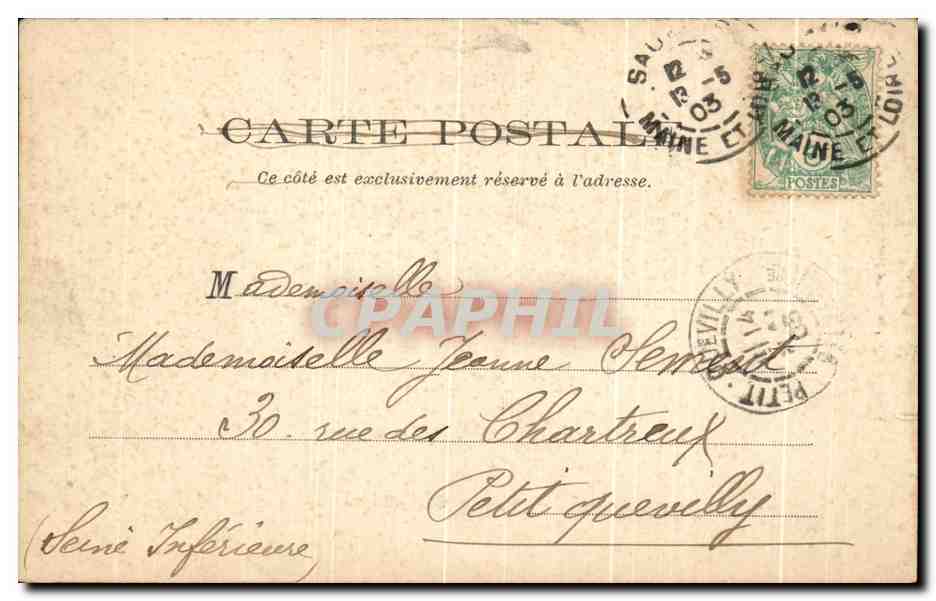 CARTE POSTALE
Ce côté est exclusivement réservé à l'adresse.
Mademoiselle
Mademoiselle Jeanne Sement
30. rue des Chartreux
Petit quevilly
(Seine Inférieure)
CPAPHIL
POSTES
SAU
12 -5
13
03
MAINE ET LOIRE
12 -5
13
03
MAINE ET LOIRE
PETIT QUEVILLY